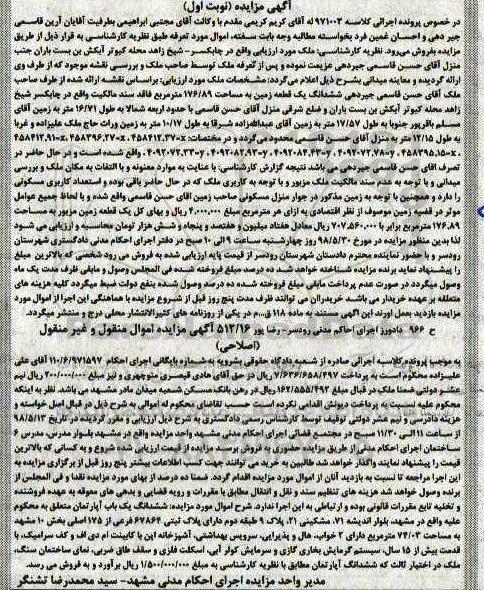 آگهی مزایده (نوبت اول)
در خصوص پرونده اجرائی کلاسه ۹۷۱۰۰۳ له آقای کریم کریمی مقدم با وکالت آقای مجتبی ابراهیمی بطرفیت آقایان آرین قاسمی
جیر دهی و احسان غمین فرد بخواسته مطالبه وجه بابت سفته، اموال مورد تعرفه طبق نظریه کارشناسی به قرار ذیل از طریق
مزایده بفروش می‌رود. نظریه کارشناسی: ملک مورد ارزیابی واقع در چابکسر - شیخ زاهد محله کبوتر آبکش بن بست یاران جنب
منزل آقای حسن قاسمی جیردهی عزیمت نموده و پس از تعرفه ملک توسط صاحب ملک و بررسی نقشه موجود که از طرف وی
ارائه گردیده و معاینه میدانی بشرح ذیل اعلام می‌گردد: مشخصات ملک مورد ارزیابی: براساس نقشه ارائه شده از طرف صاحب
ملک آقای حسن قاسمی جیردهی ششدانگ یک قطعه زمین به مساحت ۱۷۶/۸۹ مترمربع فاقد سند مالکیت واقع در چابکسر شیخ
زاهد محله کبوتر آبکش بن بست یاران و ضلع شرقی منزل آقای حسن قاسمی با حدود اربعه شمالا به طول ۱۶/۷۱ متر به زمین آقای
مسلم باقرپور جنوبا به طول ۱۷/۵۷ متر به زمین آقای عبداله‌زاده شرقا به طول ۱۰/۱۷ متر به زمین وراث حاج ملک علیزاده و غربا
به طول ۱۲/۱۵ متر به منزل آقای حسن قاسمی محدود می‌گردد و در مختصات
واقع شده است و در حال حاضر در
تصرف آقای حسن قاسمی جیردهی می باشد نتیجه گزارش کارشناسی: با عنایت به موارد معنونه و با التفات به مکان ملک و بررسی
میدانی و با توجه به عدم سند مالکیت ملک مزبور و با توجه به کاربری ملک که در حال حاضر باقی بوده و استعداد کاربری مسکونی
را دارد و همچنین با توجه به زمین مذکور در جوار منزل مسکونی صاحب زمین آقای حسن قاسمی واقع شده و با لحاظ جمیع عوامل
موثر در قضیه زمین موصوف از نظر اقتصادی به ازای هر مترمربع مبلغ ۴.۰۰۰.۰۰۰ ریال و بهای کل یک قطعه زمین مزبور به مساحت
۱۷۶.۸۹ مترمربع برابر با ۷۰۷.۵۶۰.۰۰۰ ریال معادل هفتاد میلیون و هفتصد و پنجاه و شش هزار تومان محاسبه و ارزیابی می شود
لذا بدین منظور مزایده در مورخ ۹۸/۵/۳۰ روز چهارشنبه ساعت ۹ الی ۱۰ صبح در دفتر اجرای احکام مدنی دادگستری شهرستان
رودسر و با حضور نماینده محترم دادستان شهرستان رودسر از قیمت پایه ارزیابی شده به فروش می رود شخصی که بالاترین مبلغ
را پیشنهاد نماید برنده مزایده شناخته خواهد شد ده درصد مبلغ فروخته شده فی المجلس وصول و مابقی ظرف مدت یک ماه
وصول میگردد در صورت عدم پرداخت مابقی مبلغ فروخته شده ده درصد وصول شده بنفع دولت ضبط میگردد کلیه هزینه های
متعلقه بر عهده خریدار می باشد خریداران می توانند ظرف مدت پنج روز قبل از شروع مزایده با هماهنگی این اجرا از اموال مورد
مزایده بازدید بعمل آورند این آگهی مستند به ماده ۱۱۸ ق.ا.م در یکی از روزنامه های کثیرالانتشار محلی درج و منتشر میگردد.
ح ۹۶۶ دادورز اجرای احکام مدنی رودسر- رضا پور ۵۱۲/۱۶ آگهی مزایده اموال منقول و غیر منقول
(اصلاحی)
به موجب پرونده کلاسه اجرائی صادره از شعبه دادگاه حقوقی بشرویه به شماره بایگانی اجرای احکام ۱۱۰/۶/۹۷۱۵۹۷ آقای علی
علیزاده محکوم است به پرداخت ۷/۶۳۶/۶۵۸/۴۹۷ ریال در حق آقای هادی قیصری منوچهری و نیز مبلغ ۲۰۰/۰۰۰/۰۰۰ ریال نیم
عشر دولتی ضمنا ملک در قبال مبلغ ۱۶۲/۵۵۵/۴۹۲ ریال در رهن بانک مسکن شعبه میدان مادر مشهد می باشد. نظر به اینکه
محکوم علیه نسبت به پرداخت دیونش اقدامی نکرده است حسب تقاضای محکوم له اموالی به شرح ذیل در قبال اصل خواسته و
هزینه دادرسی و نیم عشر دولتی توقیف توسط کارشناس رسمی دادگستری به شرح ذیل ارزیابی و مقرر گردیده در تاریخ ۹۸/۵/۱۳
از ساعت ۱۱ الی ۱۱/۳۰ صبح در مجتمع قضائی اجرای احکام مدنی مشهد واحد مزایده واقع در مشهد بلوار مدرس، مدرس ۶
ساختمان اجرای احکام مدنی از طریق مزایده حضوری به فروش برسد. مزایده از قیمت ارزیابی شده شروع و به کسانی که بالاترین
قیمت را پیشنهاد نمایند واگذار خواهد شد طالبین به خرید می توانند جهت کسب اطلاعات بیشتر پنج روز قبل از برگزاری مزایده به
این اجرا مراجعه تا نسبت به بازدید آنان از اموال مورد مزایده اقدام گردد. ضمنا ده درصد از بهای مورد مزایده نقدا و فی المجلس از
برنده وصول خواهد شد هزینه های تنظیم سند و نقل و انتقال مطابق با مقررات و رویه قضایی و بدهی های معوقه به عهده فروشنده
و تخلیه تابع مقررات قانونی بوده و ارتباطی به این اجرا ندارد. شرح اموال مورد مزایده: ششدانگ یک باب آپارتمان متعلق به محکوم
علیه واقع در مشهد، بلوار اندیشه ۷۱، مشکینی ۲۱، پلاک ۹ طبقه دوم دارای پلاک ثبتی ۶۷۸۶۴ فرعی از ۱۷۵ اصلی بخش ۱۰ مشهد
به مساحت ۷۴/۰۳ مترمربع دارای ۲ خواب، هال و پذیرایی، سرویس بهداشتی، آشپزخانه اپن با کابینت ام دی اف و کف سرامیک، با
قدمت بیش از ۱۵ سال، سیستم گرمایش بخاری گازی و سرمایش کولر آبی، اسکلت فلزی و سقف طاق ضربی، نمای ساختمان سنگ،
ملک در اختیار ثالث که ششدانگ آپارتمان مطابق با نظریه کارشناسی به مبلغ ۱/۵۰۰/۰۰۰/۰۰۰ ریال برآورد و به فروش می رسد.
مدیر واحد مزایده اجرای احکام مدنی مشهد- سید محمدرضا تشنگر